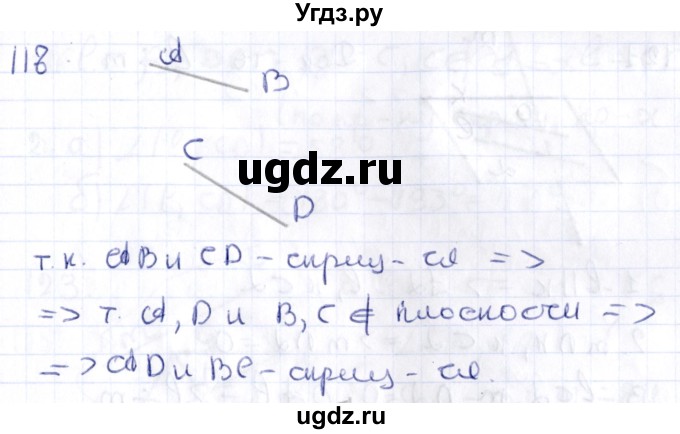 Угдз.ру
118
A
B
C
ugdz.ru
D
т.к. AB и CD - скрещ-ся =>
=> т. A, D и B, C ∉ плоскости =>
=> AD и BC - скрещ-ся.
ugdz.ru